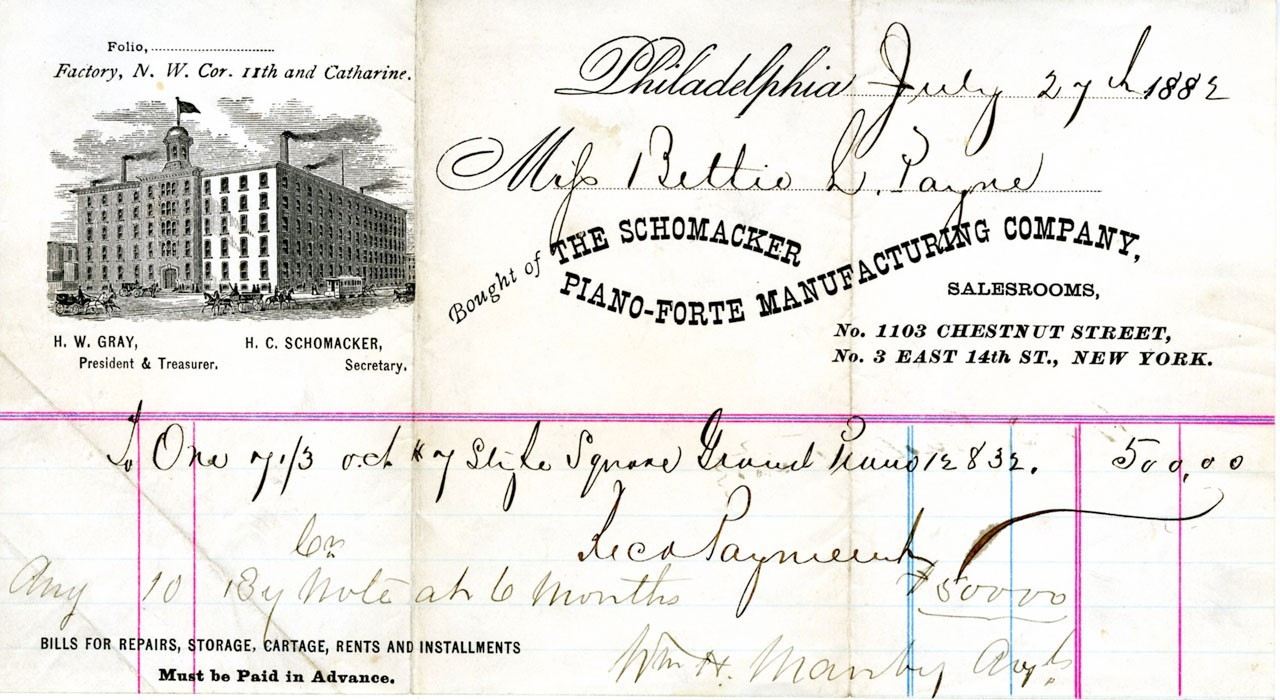 Folio,
Factory, N. W. Cor. 11th and Catharine.
H. W. GRAY,
President & Treasurer.
H. C. SCHOMACKER,
Secretary.
Philadelphia July 27th 1882
Miss Bettie L. Payne
Bought of THE SCHOMACKER
PIANO-FORTE MANUFACTURING COMPANY,
SALESROOMS,
No. 1103 CHESTNUT STREET,
No. 3 EAST 14th ST., NEW YORK.
To One 7 1/3 oct # 7 Style Square Grand Piano 12832. 500.00
Recd Payment
Cr
Aug 10 By Note at 6 Months $500 00
Wm H. Manby Agt
BILLS FOR REPAIRS, STORAGE, CARTAGE, RENTS AND INSTALLMENTS
Must be Paid in Advance.